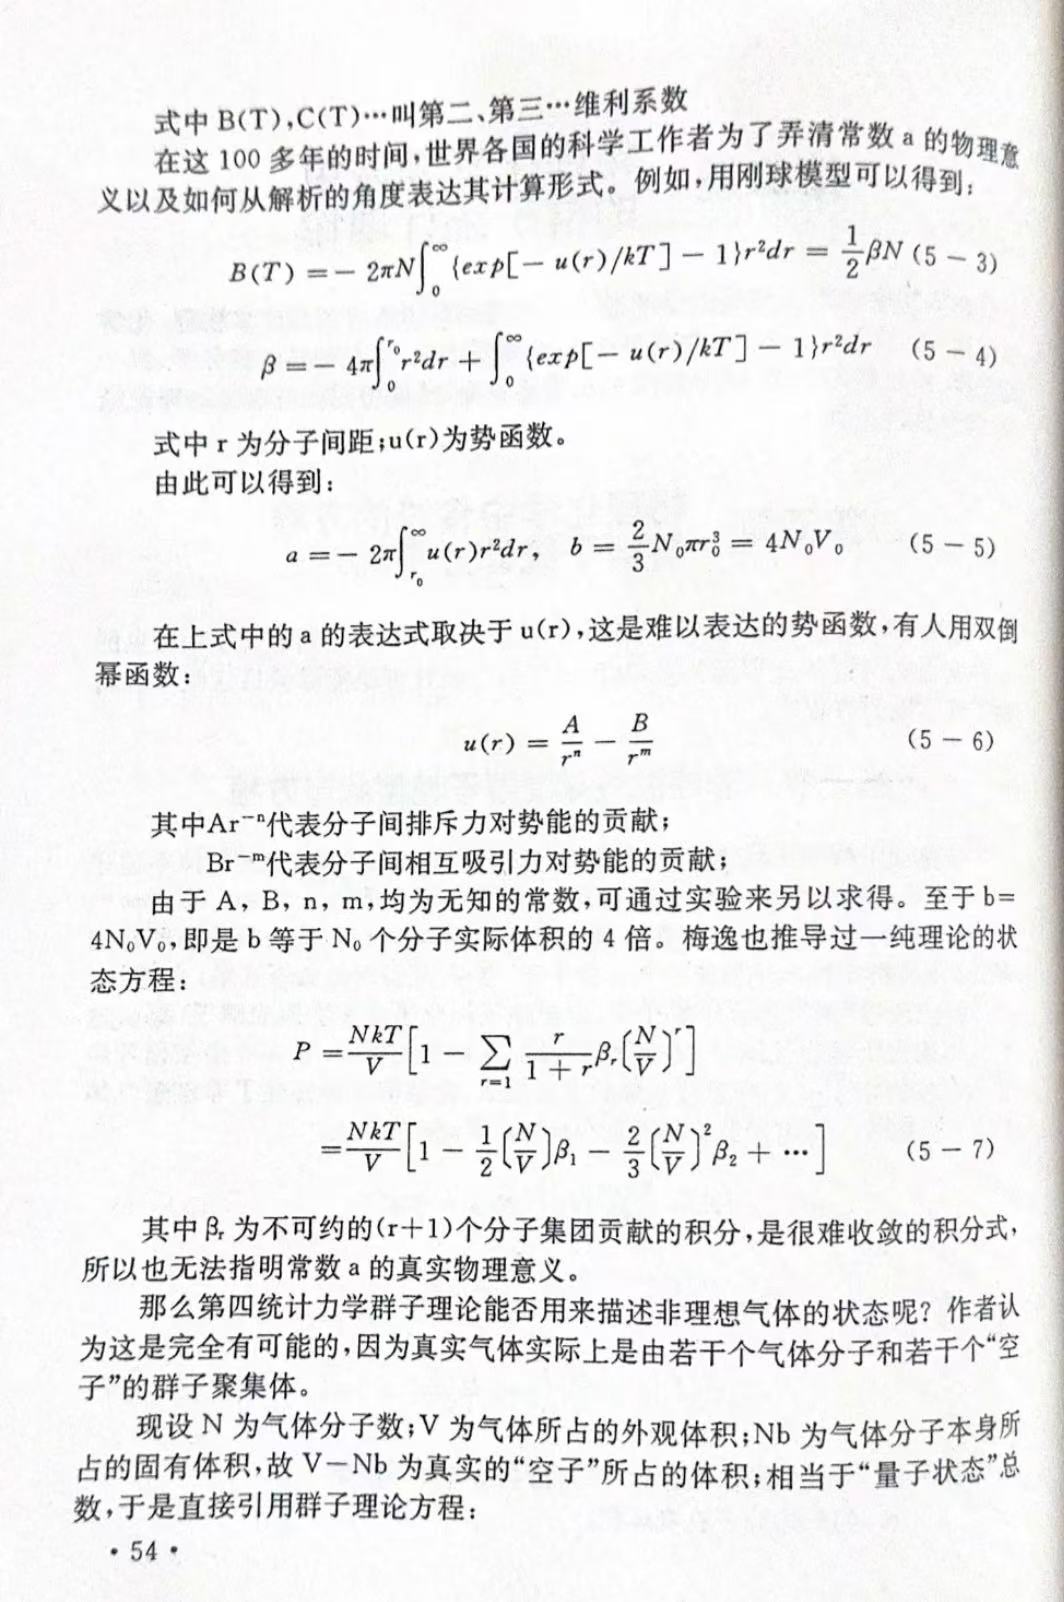 式中 B(T),C(T)…叫第二、第三…维利系数
在这 100 多年的时间,世界各国的科学工作者为了弄清常数 a 的物理意
义以及如何从解析的角度表达其计算形式。例如,用刚球模型可以得到:
B(T) = − 2πN∫₀^∞{exp[− u(r)/kT] − 1}r²dr = 1/2 βN (5 − 3)
β = − 4π∫₀^r₀ r²dr + ∫₀^∞{exp[− u(r)/kT] − 1}r²dr (5 − 4)
式中 r 为分子间距;u(r)为势函数。
由此可以得到:
a = − 2π∫_r₀^∞ u(r)r²dr, b = 2/3 N₀πr₀³ = 4N₀V₀ (5 − 5)
在上式中的 a 的表达式取决于 u(r),这是难以表达的势函数,有人用双倒
幂函数:
u(r) = A/rⁿ − B/rᵐ (5 − 6)
其中Ar⁻ⁿ代表分子间排斥力对势能的贡献;
Br⁻ᵐ代表分子间相互吸引力对势能的贡献;
由于 A, B, n, m,均为无知的常数,可通过实验来另以求得。至于 b=
4N₀V₀,即是 b 等于 N₀ 个分子实际体积的 4 倍。梅逸也推导过一纯理论的状
态方程:
P = NkT/V [1 − ∑_{r=1} r/(1 + r) βᵣ(N/V)ʳ]
= NkT/V [1 − 1/2 (N/V)β₁ − 2/3 (N/V)²β₂ + …] (5 − 7)
其中 βᵣ 为不可约的(r+1)个分子集团贡献的积分,是很难收敛的积分式,
所以也无法指明常数 a 的真实物理意义。
那么第四统计力学群子理论能否用来描述非理想气体的状态呢? 作者认
为这是完全有可能的,因为真实气体实际上是由若干个气体分子和若干个“空
子”的群子聚集体。
现设 N 为气体分子数;V 为气体所占的外观体积;Nb 为气体分子本身所
占的固有体积,故 V−Nb 为真实的“空子”所占的体积;相当于“量子状态”总
数,于是直接引用群子理论方程:
· 54 ·